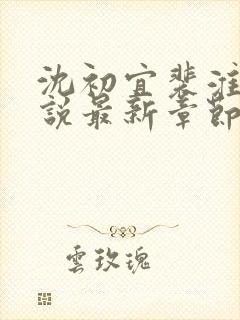 沈初宜裴淮
說最新章節
雲玫瑰